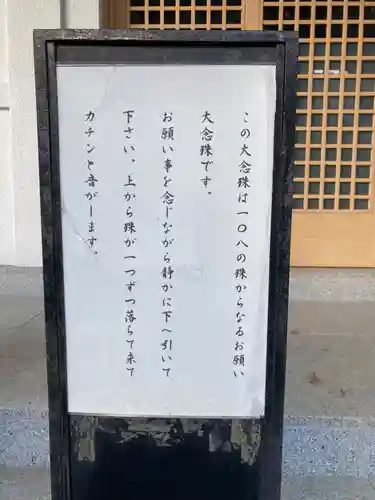 この大念珠は一〇八の珠からなるお願い
大念珠です。
お願い事を念じながら静かに下へ引いて
下さい。上から珠が一つずつ落ちて来て
カチンと音がします。